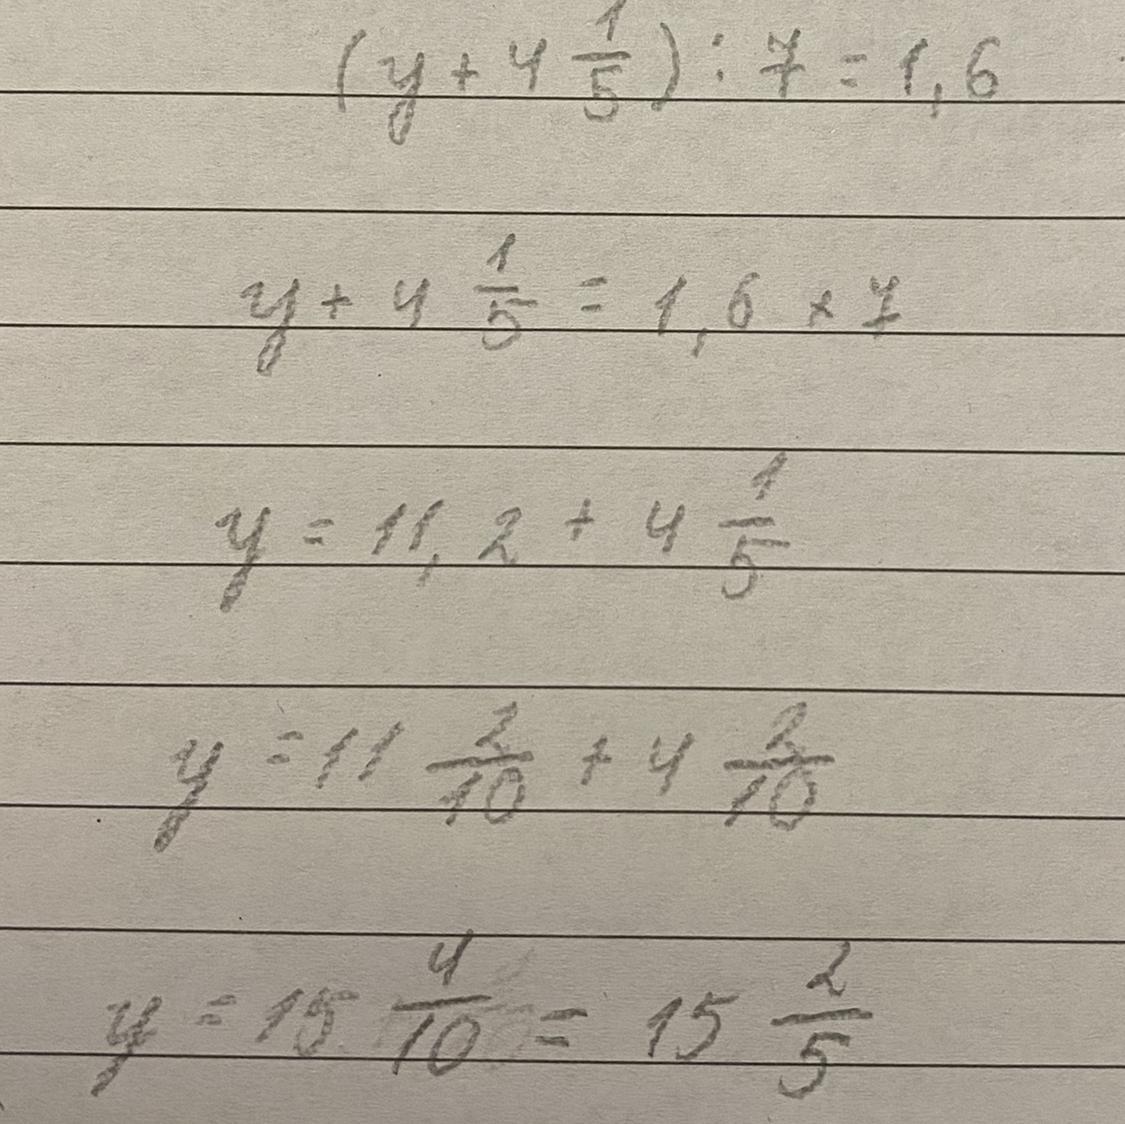 (y + 4 1/5) : 7 = 1,6
y + 4 1/5 = 1,6 × 7
y = 11,2 + 4 1/5
y = 11 2/10 + 4 2/10
y = 15 4/10 = 15 2/5